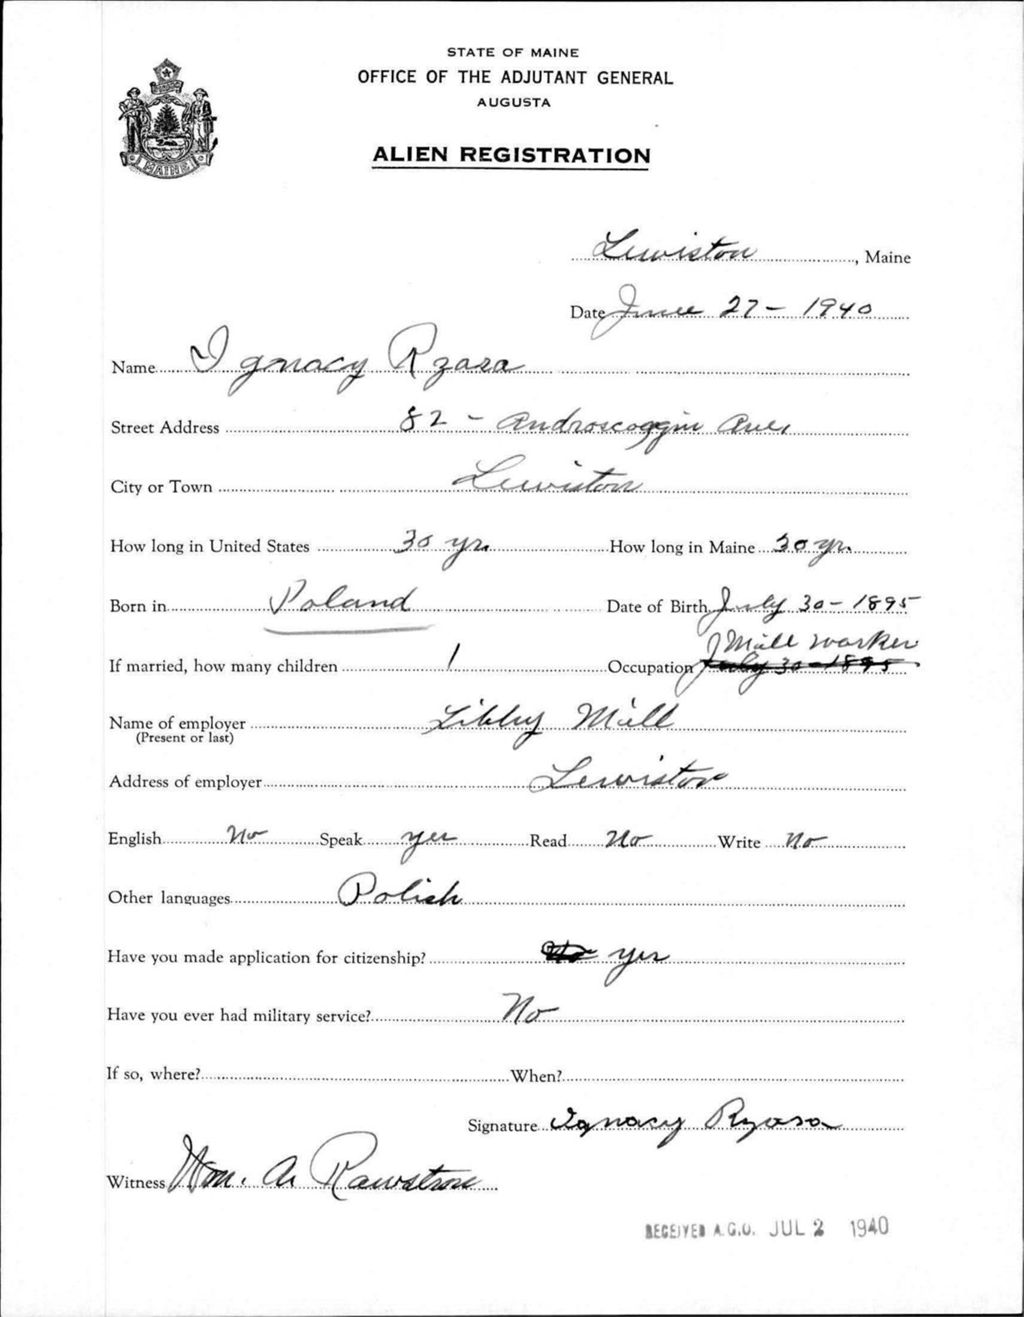 STATE OF MAINE
OFFICE OF THE ADJUTANT GENERAL
AUGUSTA
ALIEN REGISTRATION
MAINE
Lewiston, Maine
Date June 27 - 1940
Name Ignacy Rzasa
Street Address 82 - Androscoggin Ave,
City or Town Lewiston
How long in United States 30 yr. How long in Maine 30 yr.
Born in Poland Date of Birth July 30 - 1895
Mill worker
If married, how many children 1 Occupation July 30 - 1895
Name of employer Libby Mill
(Present or last)
Address of employer Lewiston
English No Speak yes Read No Write No
Other languages Polish
Have you made application for citizenship? No yes
Have you ever had military service? No
If so, where? When?
Signature Ignacy Rzasa
Witness Wm. A. Rawstron
RECEIVED A.G.O. JUL 2 1940